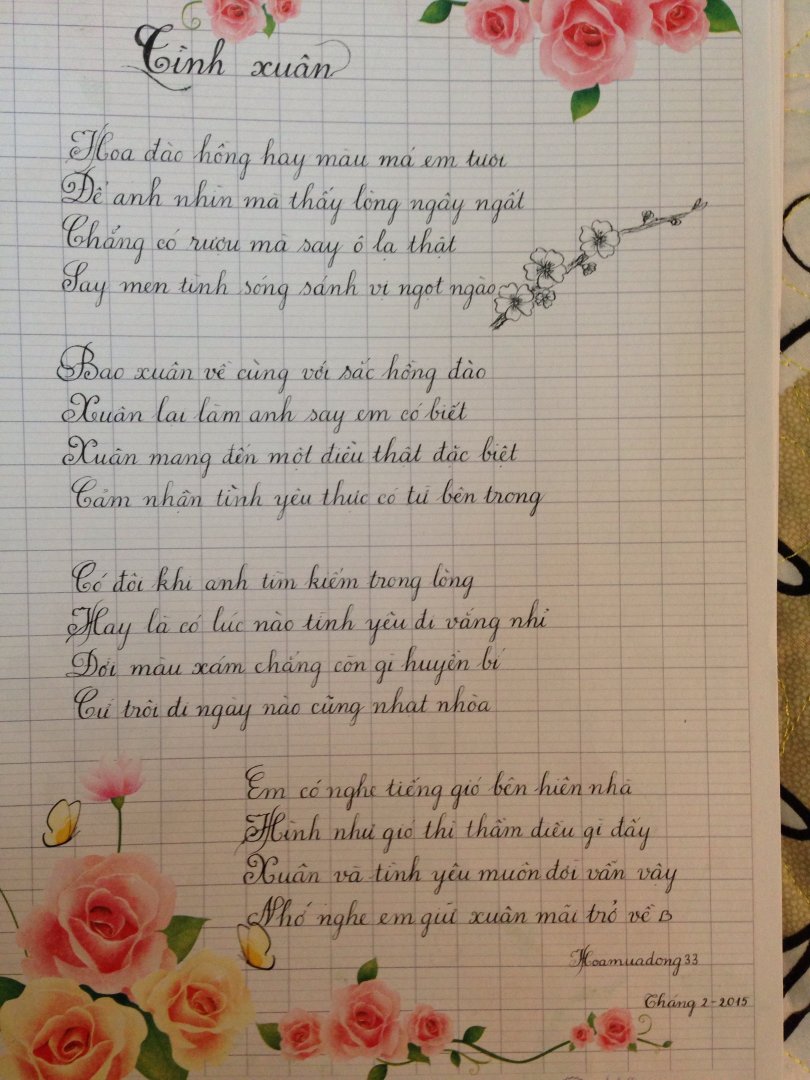 Tình xuân
Hoa đào hồng hay màu má em tươi
Để anh nhìn mà thấy lòng ngây ngất
Chẳng có rượu mà say ô lạ thật
Say men tình sóng sánh vị ngọt ngào
Bao xuân về cùng với sắc hồng đào
Xuân lại làm anh say em có biết
Xuân mang đến một điều thật đặc biệt
Cảm nhận tình yêu thực có từ bên trong
Có đôi khi anh tìm kiếm trong lòng
Hay là có lúc nào tình yêu đi vắng nhỉ
Đời màu xám chẳng còn gì huyền bí
Cứ trôi đi ngày nào cũng nhạt nhòa
Em có nghe tiếng gió bên hiên nhà
Hình như gió thì thầm điều gì đấy
Xuân và tình yêu muôn đời vẫn vậy
Nhớ nghe em giữ xuân mãi trở về
Hoamuadong33
Tháng 2-2015